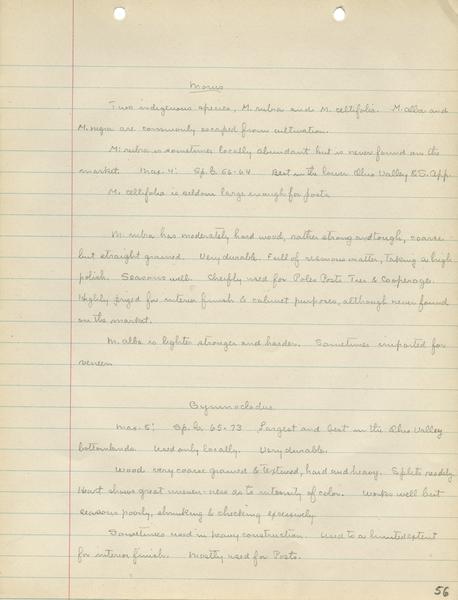 Morus
Two indigenous species, M. rubra and M. celtifolia. M. alba and
M. nigra are commonly escaped from cultivation.
M. rubra is sometimes locally abundant but is never found on the
market. Max. 4' Sp.G. 56-64 Best in the lower Ohio Valley & S. App
M. celtifolia is seldom large enough for posts
M. rubra has moderately hard wood, rather strong and tough, coarse
but straight grained. Very durable. Full of resinous matter, taking a high
polish. Seasons well. Cheifly used for Poles Posts Ties & Cooperage.
Highly prized for interior finish & cabinet purposes, although never found
on the market.
M. alba is lighter stronger and harder. Sometimes imported for
veneer
Gymnocladus
Max. 5' Sp.G. 65-73 Largest and best in the Ohio Valley
bottomlands. Used only locally. Very durable.
Wood very coarse grained & textured, hard and heavy. Splits readily
Heart shows great uneven-ness as to intensity of color. Works well but
seasons poorly, shrinking & checking excessively
Sometimes used in heavy construction. Used to a limited extent
for interior finish. Mostly used for Posts.
56